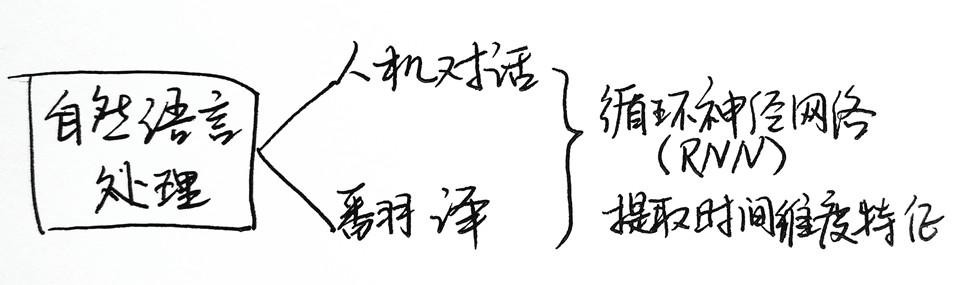 自然语言
处理
人机对话
翻译
循环神经网络
(RNN)
提取时间维度特征